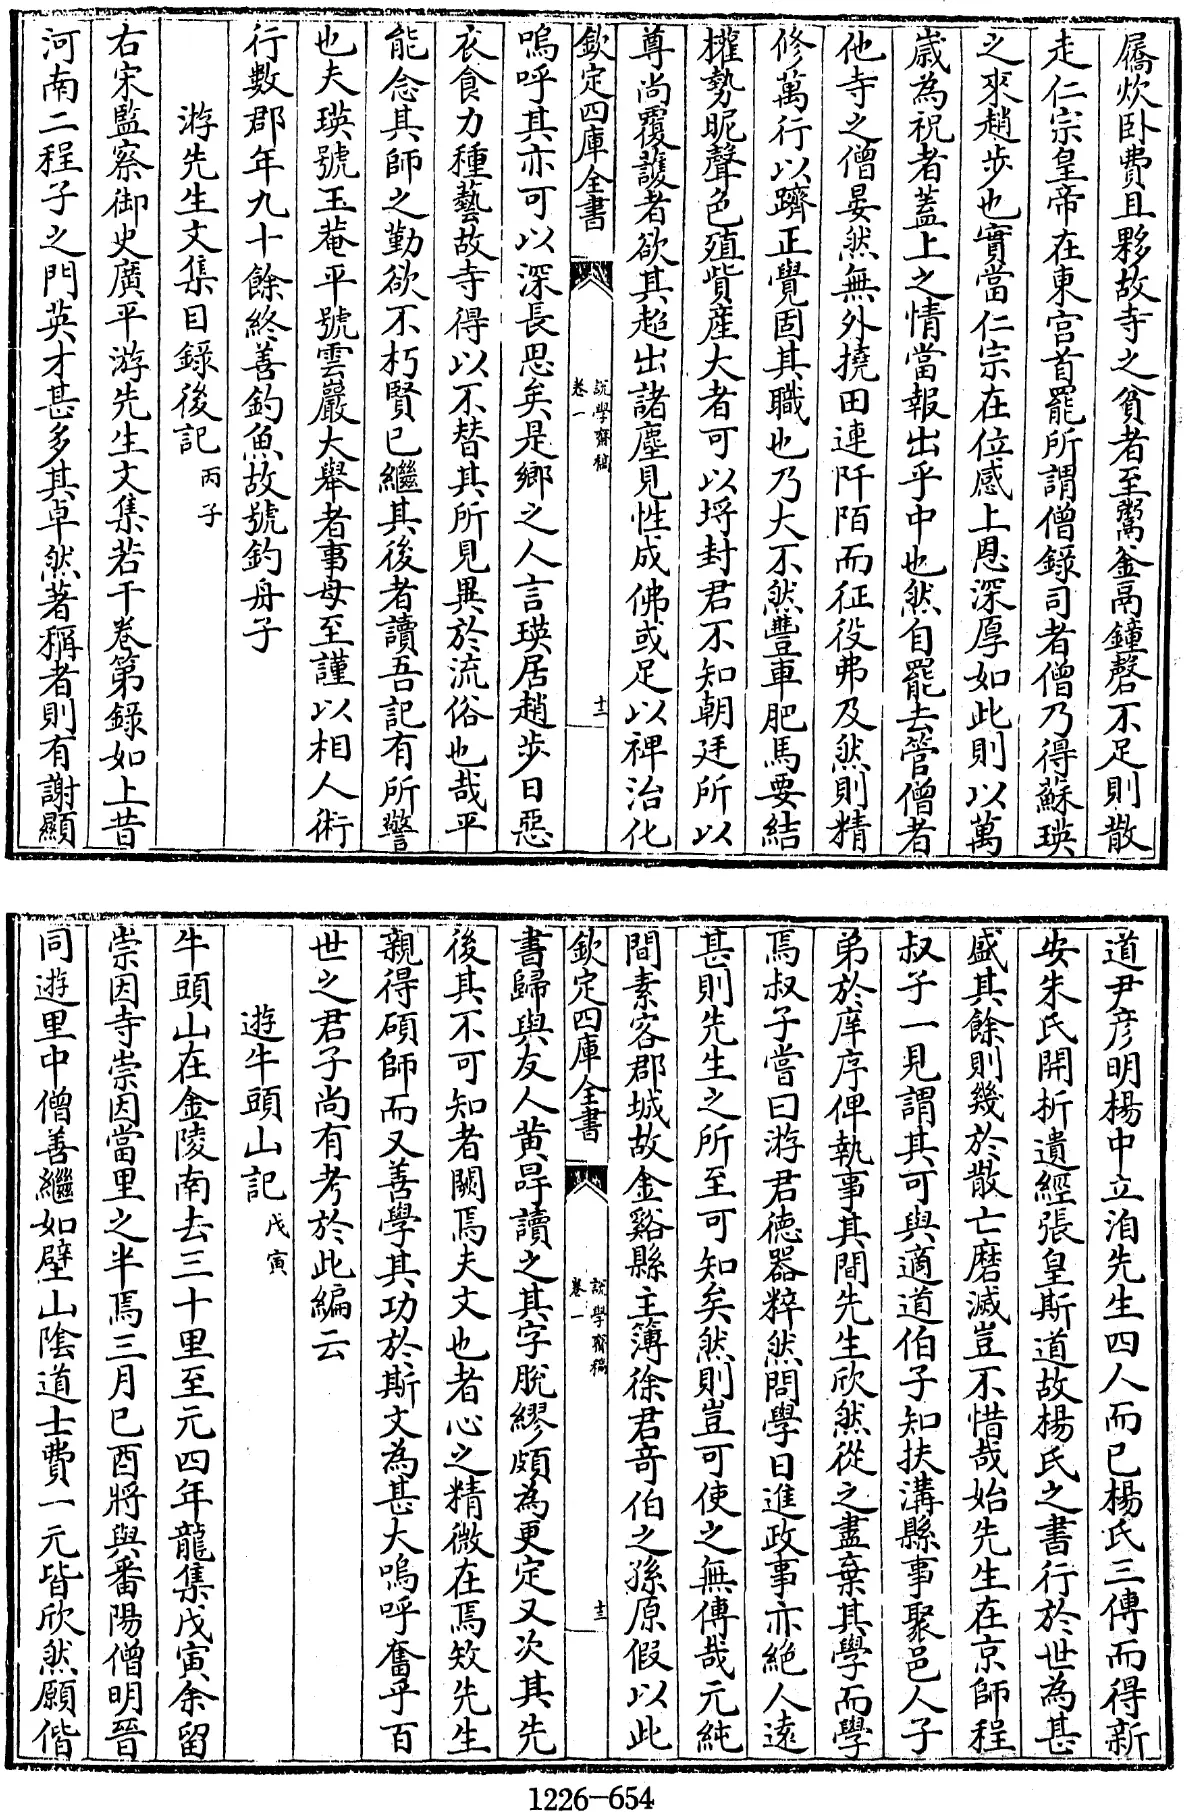 屩炊卧費且夥故寺之貧者至鬻釜鬲鐘磬不足則散
走仁宗皇帝在東宫首罷所謂僧錄司者僧乃得蘇瑛
之來趙步也實當仁宗在位感上恩深厚如此則以萬
嵗為祝者蓋上之情當報出乎中也然自罷去管僧者
他寺之僧晏然無外撓田連阡陌而征役弗及然則精
修萬行以躋正覺固其職也乃大不然豐車肥馬要結
權勢昵聲色殖貲産大者可以埒封君不知朝廷所以
尊尚覆護者欲其超出諸塵見性成佛或足以裨治化
欽定四庫全書
說學齋稿
卷一
十二
嗚呼其亦可以深長思矣是鄉之人言瑛居趙步日惡
衣食力種藝故寺得以不替其所見異於流俗也哉平
能念其師之勤欲不朽賢已繼其後者讀吾記有所警
也夫瑛號玉菴平號雲巖大舉者事母至謹以相人術
行數郡年九十餘終善釣魚故號釣舟子
游先生文集目錄後記丙子
右宋監察御史廣平游先生文集若干卷第錄如上昔
河南二程子之門英才甚多其卓然著稱者則有謝顯
道尹彥明楊中立洎先生四人而已楊氏三傳而得新
安朱氏開折遺經張皇斯道故楊氏之書行於世為甚
盛其餘則幾於散亡磨滅豈不惜哉始先生在京師程
叔子一見謂其可與適道伯子知扶溝縣事聚邑人子
弟於庠序俾執事其間先生欣然從之盡棄其學而學
焉叔子嘗曰游君德器粹然問學日進政事亦絶人遠
甚則先生之所至可知矣然則豈可使之無傳哉元純
間素客郡城故金谿縣主簿徐君奇伯之孫原假以此
欽定四庫全書
說學齋稿
卷一
十三
書歸與友人黄㝵讀之其字脫繆頗為更定又次其先
後其不可知者闕焉夫文也者心之精微在焉矧先生
親得碩師而又善學其功於斯文為甚大嗚呼奮乎百
世之君子尚有考於此編云
遊牛頭山記戊寅
牛頭山在金陵南去三十里至元四年龍集戊寅余留
崇因寺崇因當里之半焉三月己酉將與番陽僧明晉
同遊里中僧善繼如壁山陰道士費一元皆欣然願偕
1226-654